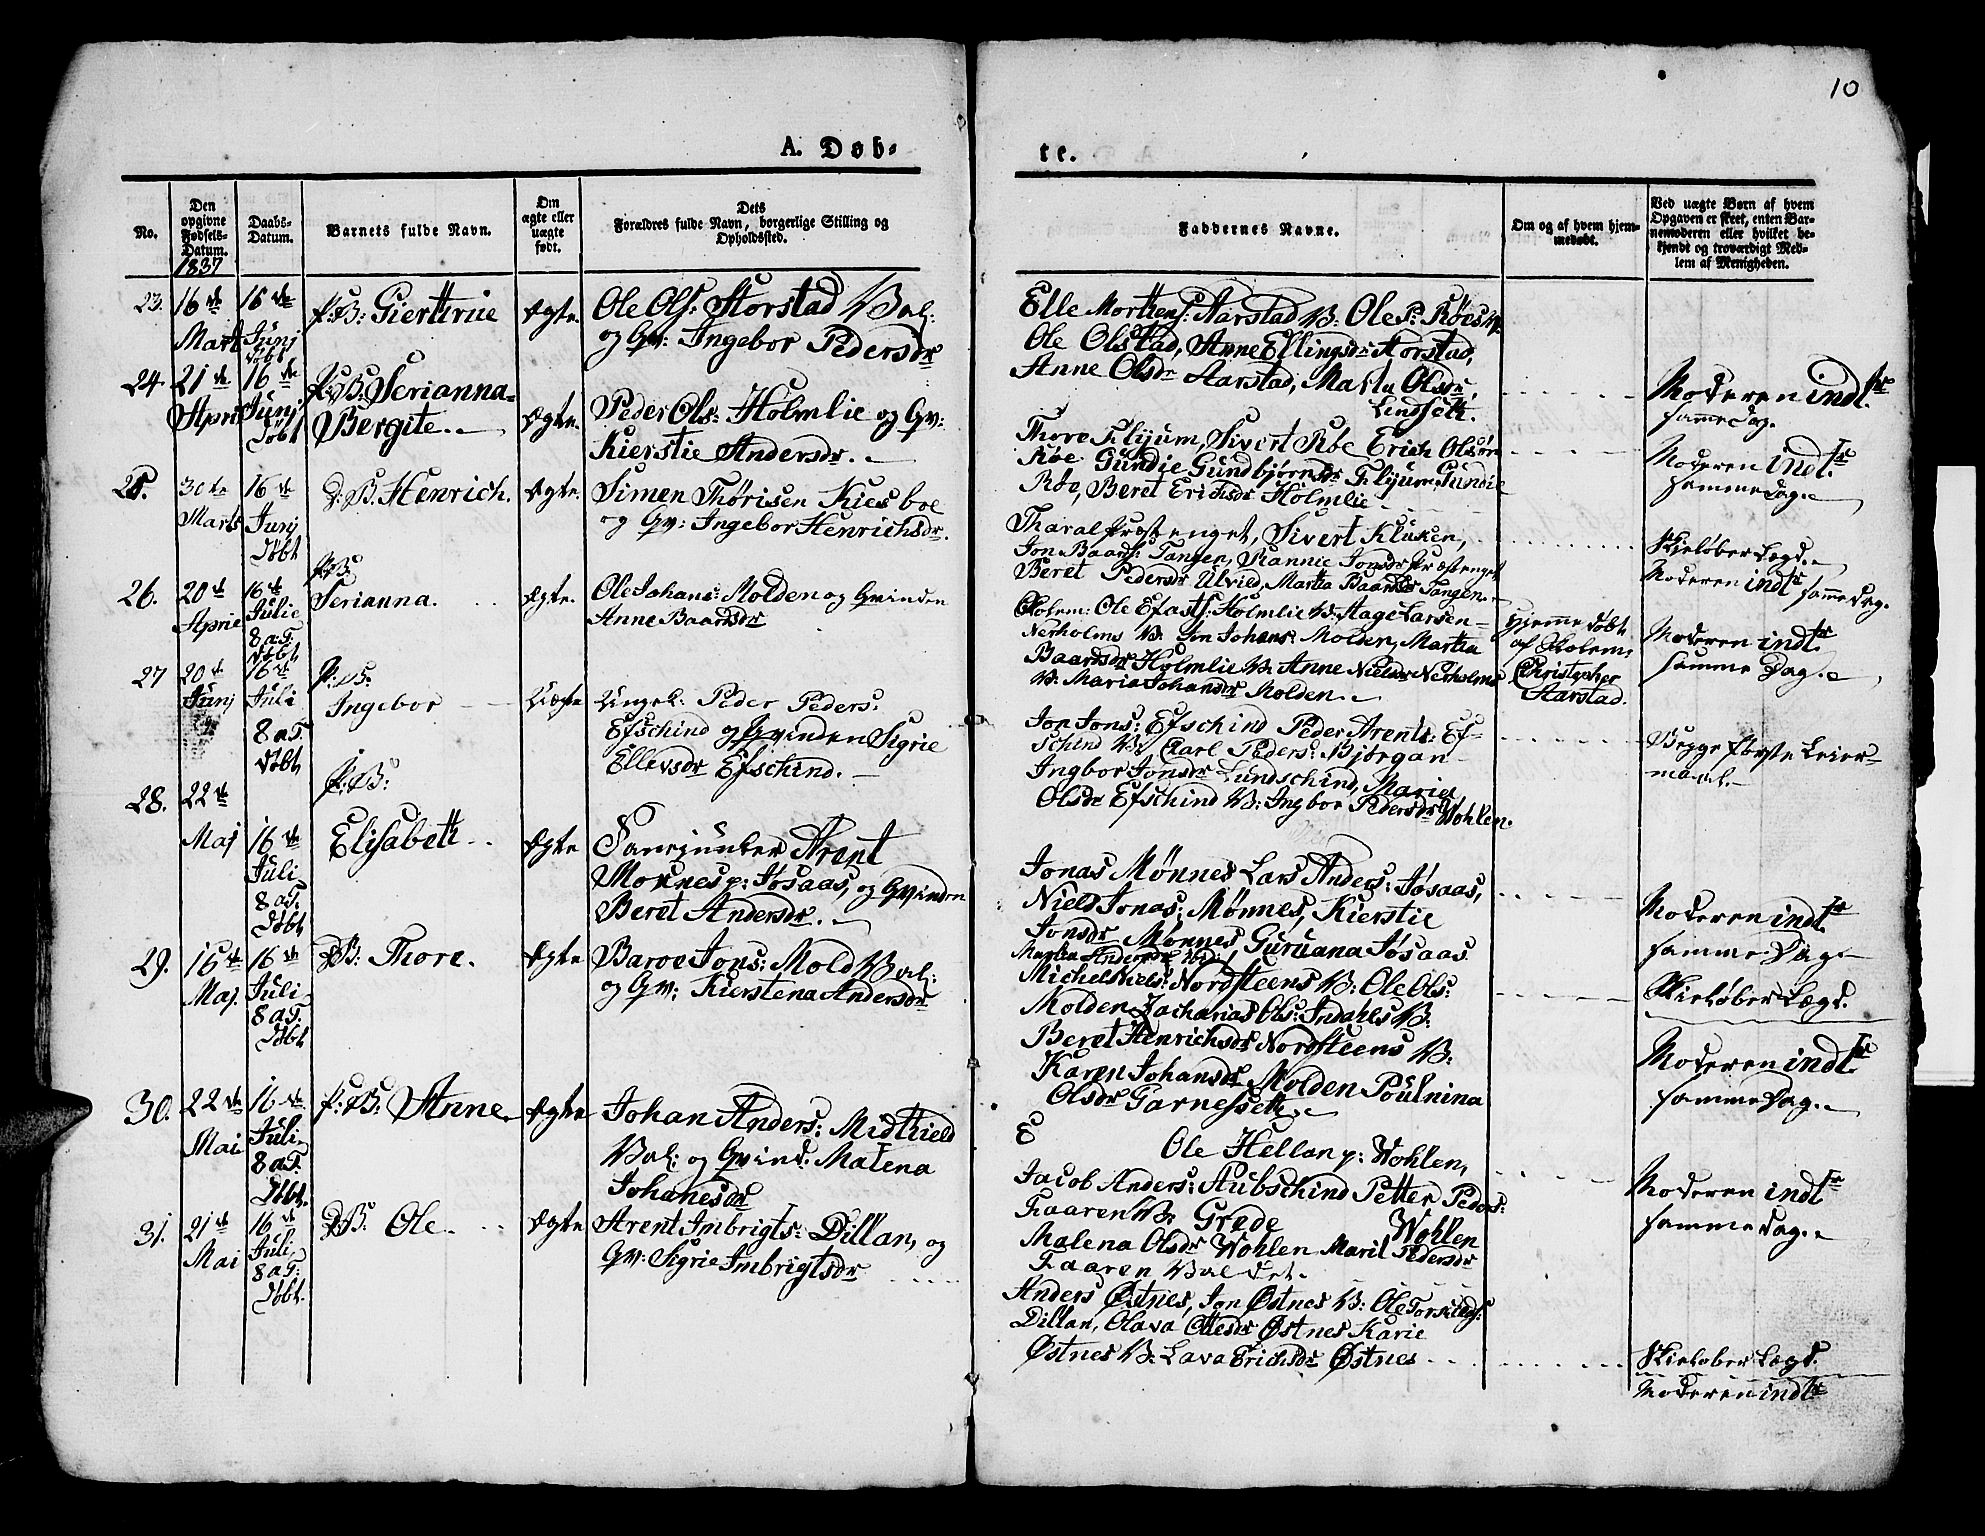 10
A. Døb-
te.
No.
Den opgivne Fødsels-Datum. 1837
Daabs-Datum.
Barnets fulde Navn.
Om ægte eller uægte født.
Dets Forældres fulde Navn, borgerlige Stilling og Opholdssted.
Faddernes Navne.
Om og af hvem hjem-medøbt.
Ved uægte Børn af hvem Opgaven er skeet, enten Bar-nemoderen eller hvilket be-kjendt og troværdigt Med-lem af Menigheden.
23. 16de Marts
16de Junj døbt
P:B: Giertrue
Ægte.
Ole Ols: Storstad Bal:
og Qv: Ingebor Pedersdr
Elle Morthens: Aarstad B: Ole P: Røes
Ole Olstad, Anne Ellingsdr Storstad,
Anne Olsdr Aarstad, Marta Olsdr
Lindseth.
Moderen indtr
samme Dag.
24. 21de April
16de Junj døbt
P:B: Serianna
Bergite.
Ægte.
Peder Ols: Holmlie og Qv:
Kierstie Andersdr.
Thore Flyum, Sivert Røe Erich Olsøn
Røe Gundie Gundbjørnsdr Flyum, Gundie
Røe, Beret Erichsdr Holmlie
Moderen indtr
samme Dag.
25. 30te Marts
16de Junj døbt
D:B. Henrich.
Ægte.
Simen Thørisen Kiesboe
og Qv: Ingebor Henrichsdr.
Tharal Præstenget, Sivert Kluken,
Jon Baards: Tangen, Rannie Jonsdr Præstenget
Beret Pedersdr Ulvild, Martha Baardsdr Tangen.
Skieløber Lægd.
Moderen indtr samme Dag.
26. 20de April
16de Julie 8 a T. døbt
P:B:
Serianna.
Ægte.
Ole Johans: Molden og Qvinden
Anne Baardsdr
Skolem: Ole Efasts: Holmlie B: Aage Larsen
Nerholms B: Jon Johans: Molden, Martha
Baardsdr Holmlie B: Anne Nielsdr Nerholms
B: Maria Johansdr Molden.
Hjemme døbt
af Skolem:
Christopher
Aarstad.
Moderen indtr
samme Dag.
27 20de Junj
16de Juli 8 a T døbt
P:B:
Ingebor
Uægte
Ungk: Peder Peders:
Efschind og Qvinden Sigrie
Ellevsdr Efschind.
Jon Jons: Efschind Peder Arents: Ef-
schind B: Carl Peders: Bjørgan
Ingbor Jonsdr Lundschind, Marie
Olsdr Efschind B: Ingbor Pedersdr Wohlen.
Begge første Leier-
maal.
28. 22de Maj
16de Juli 8 a T. døbt
P:B:
Elisabeth
Ægte
Sanejunker Arent
Monnes p: Jøsaas, og Qvinden
Beret Andersdr.
Jonas Mønnes Lars Anders: Jøsaas,
Niels Jonas: Mønnes, Kierstie
Jonsdr Mønnes, Guruana Jøsaas
Moderen indtr
samme Dag.
29. 16de Maj.
16de Juli 8 a T. døbt
D:B: Thore.
Ægte
Baroe Jons: Mold Bal:
og Qv: Kierstena Andersdr
Michel Niels: Nordsteens B: Ole Ols:
Molden Zacharias Ols: Indahls B:
Beret Henrichsdr Nordsteens B:
Karen Johansdr Molden Poulnina
Olsdr Garnesseth.
Skieløber Lægd.
Moderen indtr
samme Dag.
30. 22de Mai
16de Juli 8 a T. døbt.
P:B: Anne.
Ægte
Johan Anders: Midthield
Bal: og Qvind: Malena
Johanesdr
Ole Hellan p: Wohlen,
Jacob Anders: Aubschind Petter Peders:
Faaren B: Grede Wohlen
Malena Olsdr Wohlen Marit Pedersdr
Faaren Baldet.
Moderen indtr
samme Dag.
31. 21de Mai
16de Juli, 8 a T: døbt.
D:B. Ole.
Ægte
Arent Imbrigts: Dillan, og
Qv: Sigrie Imbrigtsdr
Anders Østnes, Jon Østnes B: Ole Torstens:
Dillan, Olava Ottesdr Østnes Karie
Østnes B: Lava Erichsdr Østnes
Skieløber Lægd.
Moderen indtr